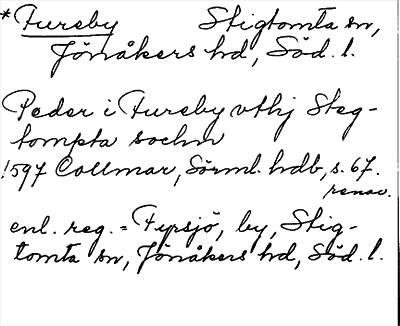 *Fureby Stigtomta sn,
Jönåkers hd, Söd. l.
Peder i Fureby vthj Steg-
tompta sochn
1597 Collmar, Sörml. hdb, s. 67.
renov.
enl. reg. = Fyrsjö, by, Stig-
tomta sn, Jönåkers hd, Söd. l.